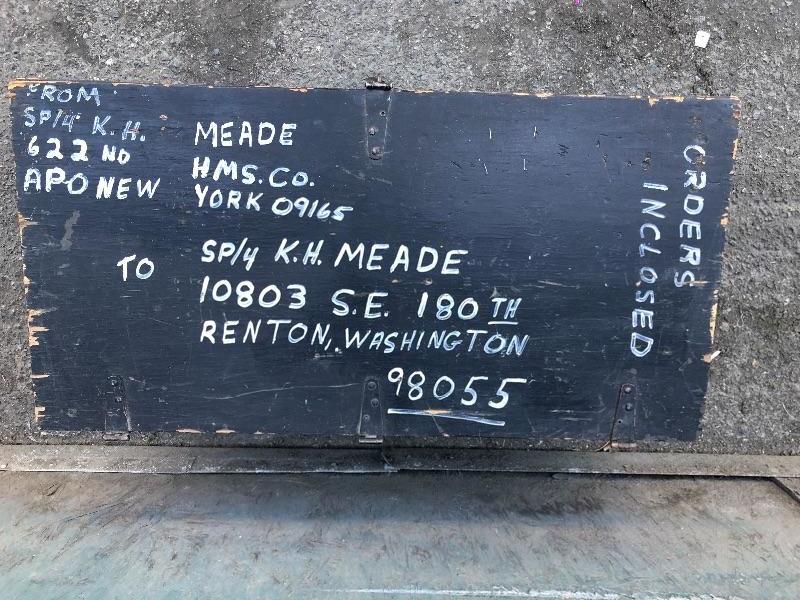 FROM
SP/4 K.H. MEADE
622ND HMS. CO.
APO NEW YORK 09165
TO SP/4 K.H. MEADE
10803 S.E. 180TH
RENTON, WASHINGTON
98055
ORDERS
INCLOSED